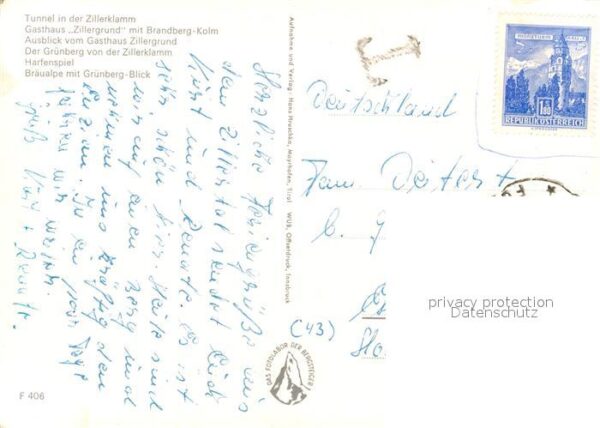 Tunnel in der Zillerklamm
Gasthaus „Zillergrund" mit Brandberg-Kolm
Ausblick vom Gasthaus Zillergrund
Der Grünberg von der Zillerklamm
Harfenspiel
Bräualpe mit Grünberg-Blick
Herzliche Feriengrüße aus
dem Zillertal sendet Euch
Kurt und Renate. Es ist
sehr schön hier. Heute sind
wir auf einen Berg und
nehmen uns kräftig den
Enzian. In ein paar Tage
fahren wir weiter.
Gruß Kurt + Renate.
F 406
Aufnahme und Verlag: Hans Hruschka, Mayrhofen, Tirol WUB, Offsetdruck, Innsbruck
DAS FOTOLABOR DER BERGSTEIGER
T
1.80
REPUBLIK ÖSTERREICH
Deutschland
Fam. Deitert
(43)
privacy protection
Datenschutz